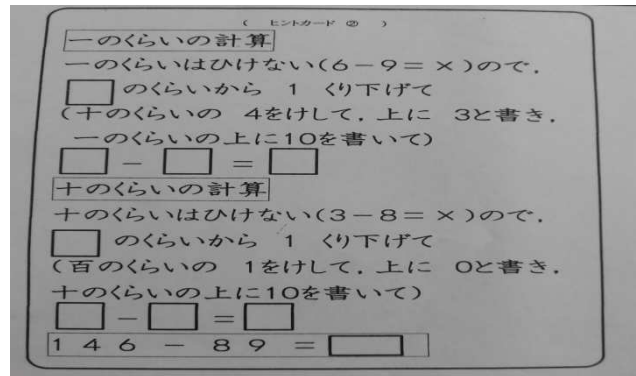 ( ヒントカード ② )
一のくらいの計算
一のくらいはひけない(6-9=×)ので,
□のくらいから 1 くり下げて
(十のくらいの 4をけして,上に 3と書き,
一のくらいの上に10を書いて)
□-□=□
十のくらいの計算
十のくらいはひけない(3-8=×)ので,
□のくらいから 1 くり下げて
(百のくらいの 1をけして,上に 0と書き,
十のくらいの上に10を書いて)
□-□=□
146-89=□